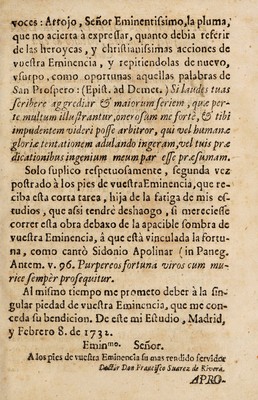 voces: Arrojo, Señor Eminentissimo, la pluma,
que no acierta à expressar, quanto debia referir
de las heroycas, y christianissimas acciones de
vuestra Eminencia, y repitiendolas de nuevo,
vsurpo, como oportunas aquellas palabras de
San Prospero: (Epist. ad Demet.) Si laudes tuas
scribere aggrediar & maiorum seriem, quæ per-
te multum illustrantur, onerosum me fortè, & tibi
impudentem videri posse arbitror, qui vel humanæ
gloriæ tentationem adulando ingeram, vel tuis præ
dicationibus ingenium meum par esse præsumam.
Solo suplico respetuosamente, segunda vez
postrado à los pies de vuestra Eminencia, que re-
ciba esta corta tarea, hija de la fatiga de mis es-
tudios, que assi tendrè deshaogo, si mereciesse
correr esta obra debaxo de la apacible sombra de
vuestra Eminencia, à que està vinculada la fortu-
na, como cantò Sidonio Apolinar (in Paneg.
Antem. v. 96. Purpereos fortuna viros cum mu-
rice sempèr prosequitur.
Al mismo tiempo me prometo deber à la sin-
gular piedad de vuestra Eminencia, que me con-
ceda su bendicion. De este mi Estudio, Madrid,
y Febrero 8. de 1732.
Emin.mo. Señor.
A los pies de vuestra Eminencia su mas rendido servidor
Doctor Don Francisco Suarez de Rivera.
APRO-